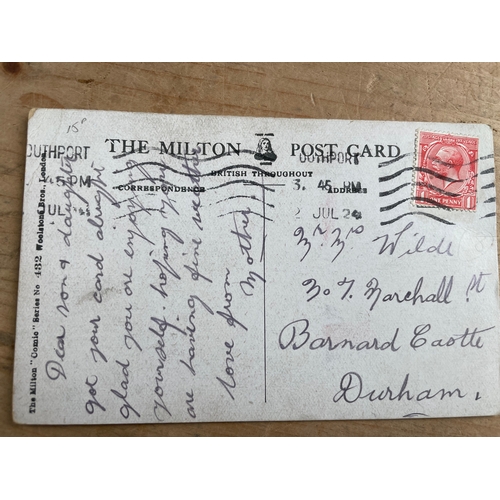 15p
THE MILTON POST CARD
BRITISH THROUGHOUT
CORRESPONDENCE
ADDRESS
OUTHPORT
45 PM
UL
OUTHPORT
3. 45 PM
2 JUL 24
ONE PENNY
1
The Milton "Comic" Series No 432 Woolstone Bros. London.
Dear son & daughter
got your card alright
glad you are enjoying
yourself. hoping you
are having fine weather
love from
Mother
Mr Mrs Wilde
Marchall St
Barnard Castle
Durham,